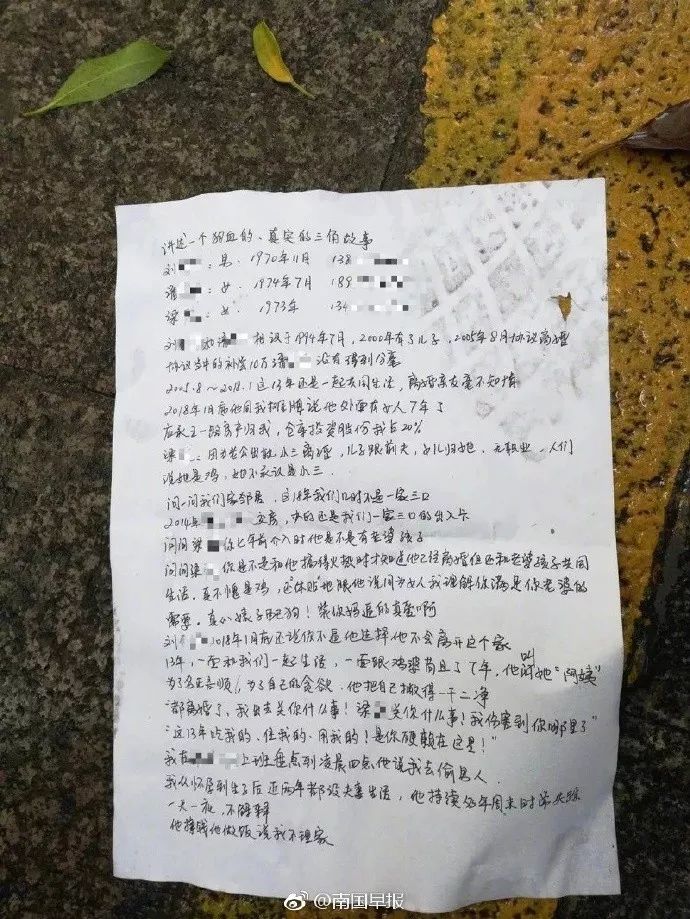 讲述一个狗血的、真实的三角故事
刘 : 男. 1970年11月 138
潘 : 女. 1974年7月 189
梁 : 女. 1973年 134
刘 和潘 相识于1994年7月, 2000年有了儿子, 2005年8月协议离婚
协议当中的补偿10万潘 没有得到分毫
2005.8～2018.1这13年还是一起共同生活, 离婚亲友毫不知情
2018年1月底他同我摊牌说他外面有女人7年了
应承王一路房产归我, 仓库投资股份我占20%
梁 . 因为老公出轨小三离婚, 儿子跟前夫, 女儿归她. 无职业. 人们
说她是鸡, 她不承认是小三.
问一问我们家邻居, 这13年我们几时不是一家三口
2014年 , 办的还是我们一家三口的出入卡
问问梁 你七年前介入时他是不是有老婆孩子
问问梁 你是不是和他搞得火热时才知道他已经离婚但还和老婆孩子共同
生活. 真不愧是鸡, 还"体贴"地跟他说同为女人我理解你满足你老婆的
需要. 真心婊子配狗! 装你妈逼的真爱啊
刘 2018年1月底还说你不是他选择他不会离开这个家
13年, 一面和我们一起生活, 一面跟鸡婆苟且了7年. 他叫她"阿姨"
为了名正言顺, 为了自己的贪欲. 他把自己撇得一干二净
"都离婚了、我出去关你什么事! 梁 关你什么事! 我伤害到你哪里了"
"这13年吃我的. 住我的. 用我的! 是你硬赖在这里!"
我在 上班盘点到凌晨四点他说我去偷男人.
我从怀孕到生了后近两年都没夫妻生活, 他持续 年周末时常失踪
一天一夜, 不解释
他 他做饭说我不理家
南国早报